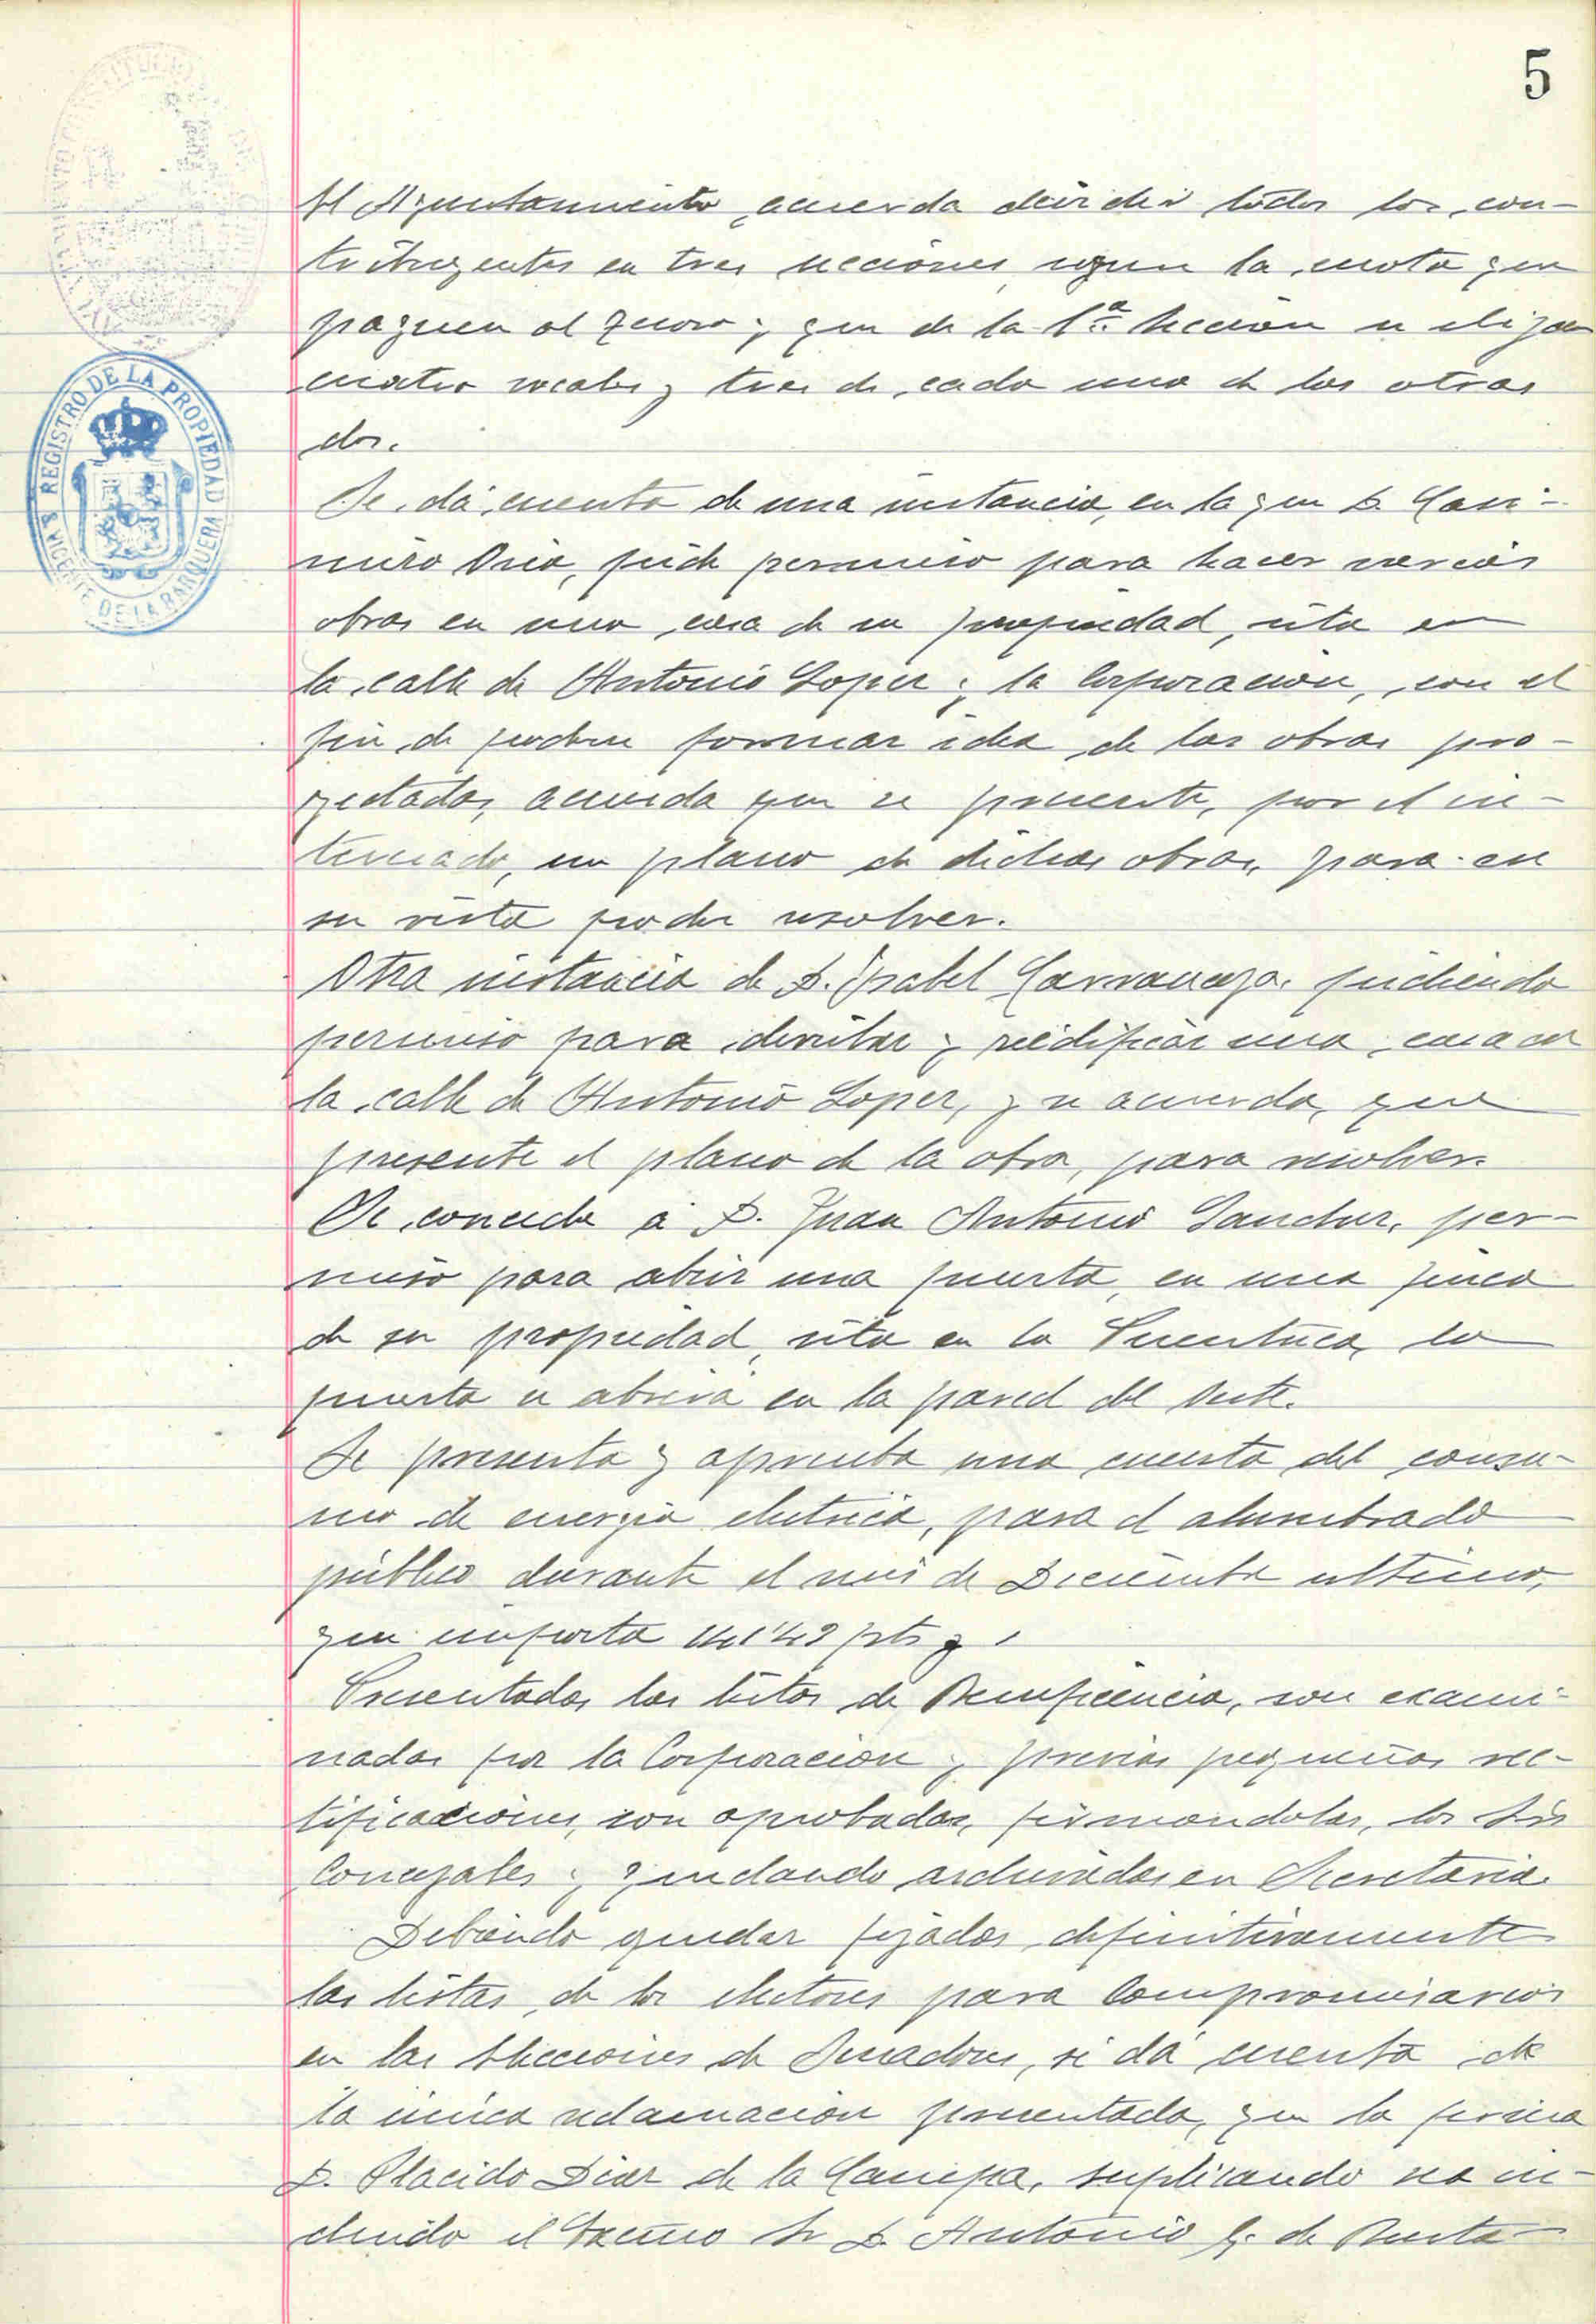 5
El Ayuntamiento acuerda dividir todos los con-
tribuyentes en tres secciones segun la cuota que
paguen al Tesoro y que de la 1.ª Seccion se elijan
cuatro vocales y tres de cada una de las otras
dos.
Se dá cuenta de una instancia, en la que D. Casi-
miro Oria, pide permiso para hacer varias
obras en una casa de su propiedad, sita en
la calle de Antonio Lopez; la Corporacion, con el
fin de poderse formar idea de las obras pro-
yectadas, acuerda que se presente, por el in-
teresado, un plano de dichas obras, para en
su vista poder resolver.
Otra instancia de D. Ysabel Carranceja, pidiendo
permiso para derribar y reedificar una casa en
la calle de Antonio Lopez, y se acuerda que
presente el plano de la obra, para resolver.
Se concede á D. Juan Antonio Sanchez, per-
miso para abrir una puerta, en una finca
de su propiedad, sita en la Fuentuca, la
puerta se abrirá en la pared del Oeste.
Se presenta y aprueba una cuenta del consu-
mo de energia electrica, para el alumbrado
público durante el mes de Diciembre ultimo,
que importa 141'49 pts
Presentadas las listas de Beneficencia, son exami-
nadas por la Corporacion y previas pequeñas rec-
tificaciones, son aprobadas, firmandolas, los Srs
Concejales y quedando archivadas en Secretaria.
Debiendo quedar fijadas definitivamente
las listas de los electores para Compromisarios
en las Elecciones de Senadores, se dá cuenta de
la única reclamacion presentada, que la firma
D. Placido Diaz de la Campa, suplicando sea in-
cluido el Excmo Sr D. Antonio G. de Busta-
REGISTRO DE LA PROPIEDAD
S. VICENTE DE LA BARQUERA